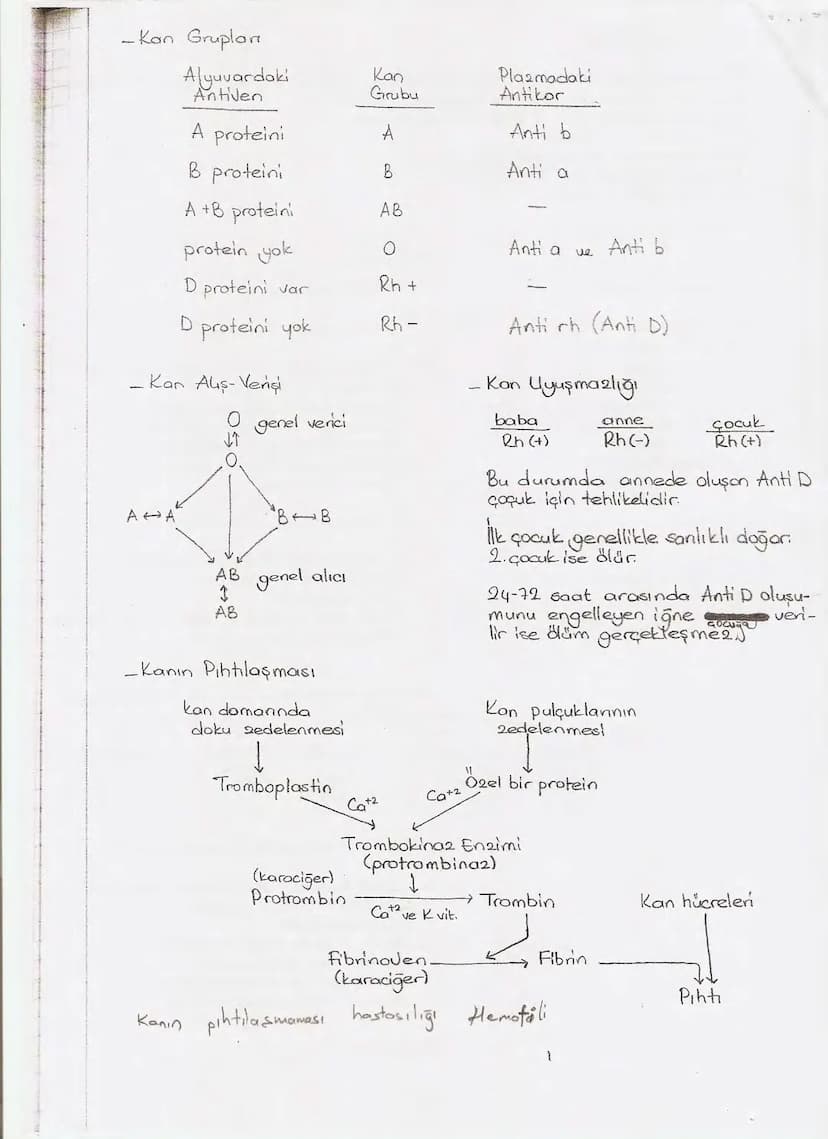 - Kan Grupları
Alyuvardaki Antijen Kan Grubu Plazmadaki Antikor
A proteini A Anti b
B proteini B Anti a
A+B proteini AB —
protein yok O Anti a ve Anti b
D proteini var Rh + —
D proteini yok Rh - Anti rh (Anti D)
- Kan Alış-Verişi
O genel verici
O
A ↔ A B ↔ B
AB genel alıcı
AB
- Kan Uyuşmazlığı
baba anne çocuk
Rh (+) Rh (-) Rh (+)
Bu durumda annede oluşan Anti D
çocuk için tehlikelidir.
İlk çocuk genellikle sarılıklı doğar.
2. çocuk ise ölür.
24-72 saat arasında Anti D oluşu-
munu engelleyen iğne çocuğa veri-
lir ise ölüm gerçekleşmez.
- Kanın Pıhtılaşması
kan damarında
doku zedelenmesi
Kan pulçuklarının
zedelenmesi
Tromboplastin Ca+2 Ca+2 Özel bir protein
Trombokinaz Enzimi
(protrombinaz)
(karaciğer)
Protrombin → Trombin Kan hücreleri
Ca+2 ve K vit.
Fibrinojen → Fibrin
(karaciğer)
Pıhtı
Kanın pıhtılaşmaması hastasılığı Hemofili
1